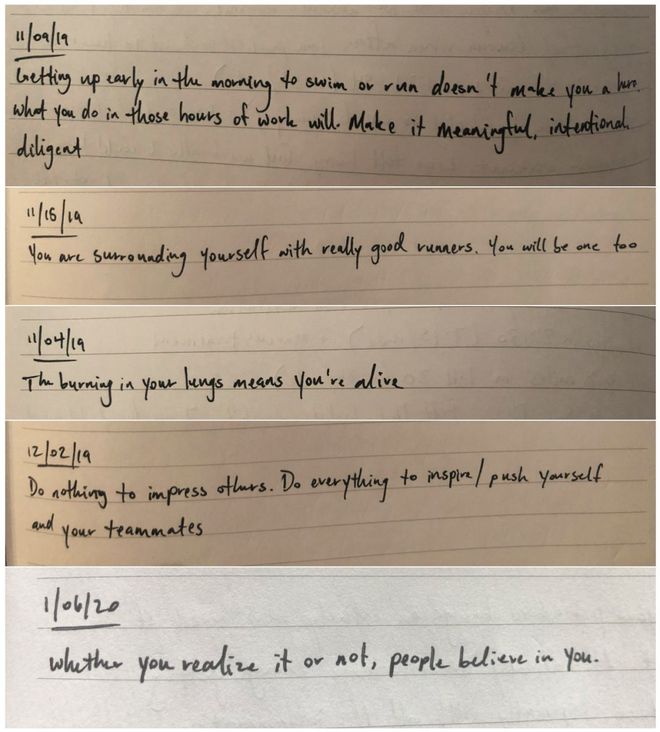 11/09/19
Getting up early in the morning to swim or run doesn't make you a hero.
What you do in those hours of work will. Make it meaningful, intentional,
diligent
11/15/19
You are surrounding yourself with really good runners. You will be one too
11/04/19
The burning in your lungs means you're alive
12/02/19
Do nothing to impress others. Do everything to inspire/push yourself
and your teammates
1/06/20
Whether you realize it or not, people believe in you.